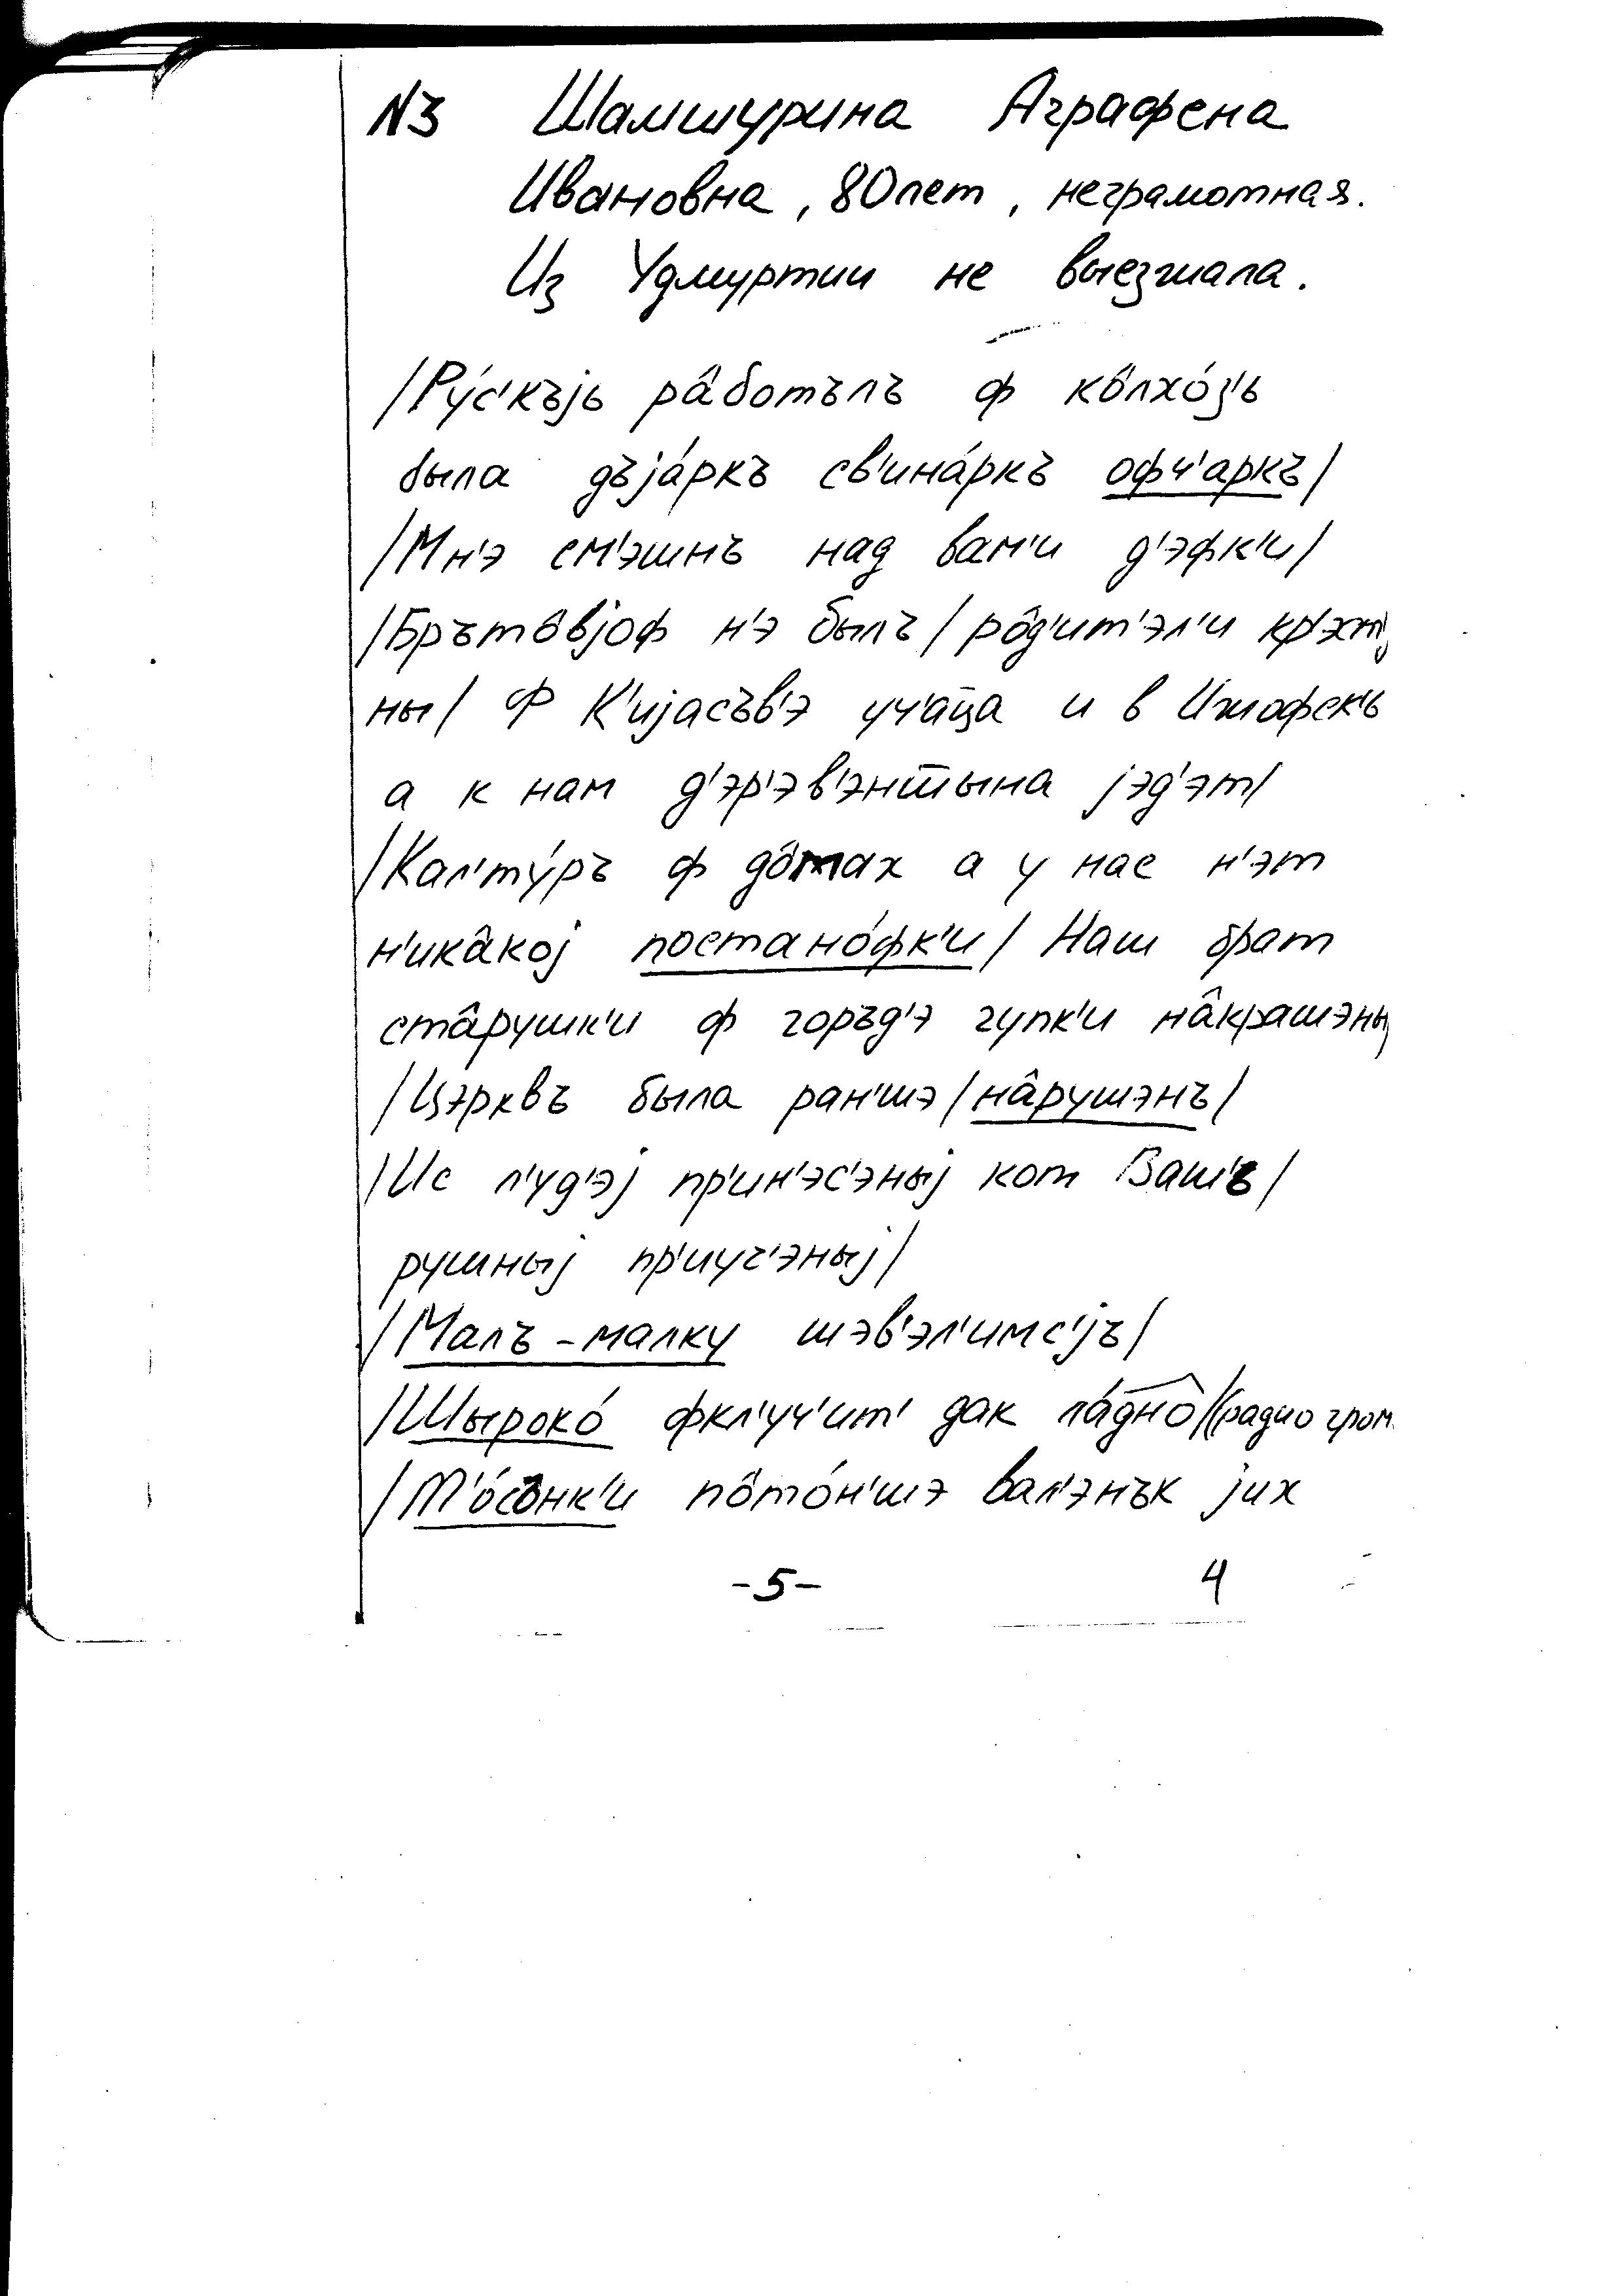 N3 Шамшурина Аграфена
Ивановна, 80 лет, неграмотная.
Из Удмуртии не выезжала.
/Ру́с'къjь рâботълъ ф кôлхо́з'ь
была дъjа́ркъ св'ина́ркъ офч'аркъ/
/Мн'э см'эшнъ над вам'и д'эфк'и/
/Брътôвjоф н'э былъ/ рôд'ит'эл'и
ны/ Ф К'иjасъв'э уч'а̄ца и в Ижофск'ь
а к нам д'эр'эв'энт̄ына jэд'эт/
/Кал'ту́ръ ф дôмах а у нас н'эт
н'икâкоj постано́фк'и/ Наш брат
стâрушк'и ф горъд'э гупк'и нâкрашэны
/Цэрквъ была ран'шэ/ нâрушэнъ/
/Ис л'уд'эj пр'ин'эс'эныj кот Ваш'ь/
рушныj пр'иуч'эныj/
/Малъ-малку шэв'эл'имс'jъ/
/Шыроко́ фкл'уч'ит' дак ла́днô/(радио гром.
/Т'о́сонк'и пôто́н'шэ вал'энък jих
-5- 4